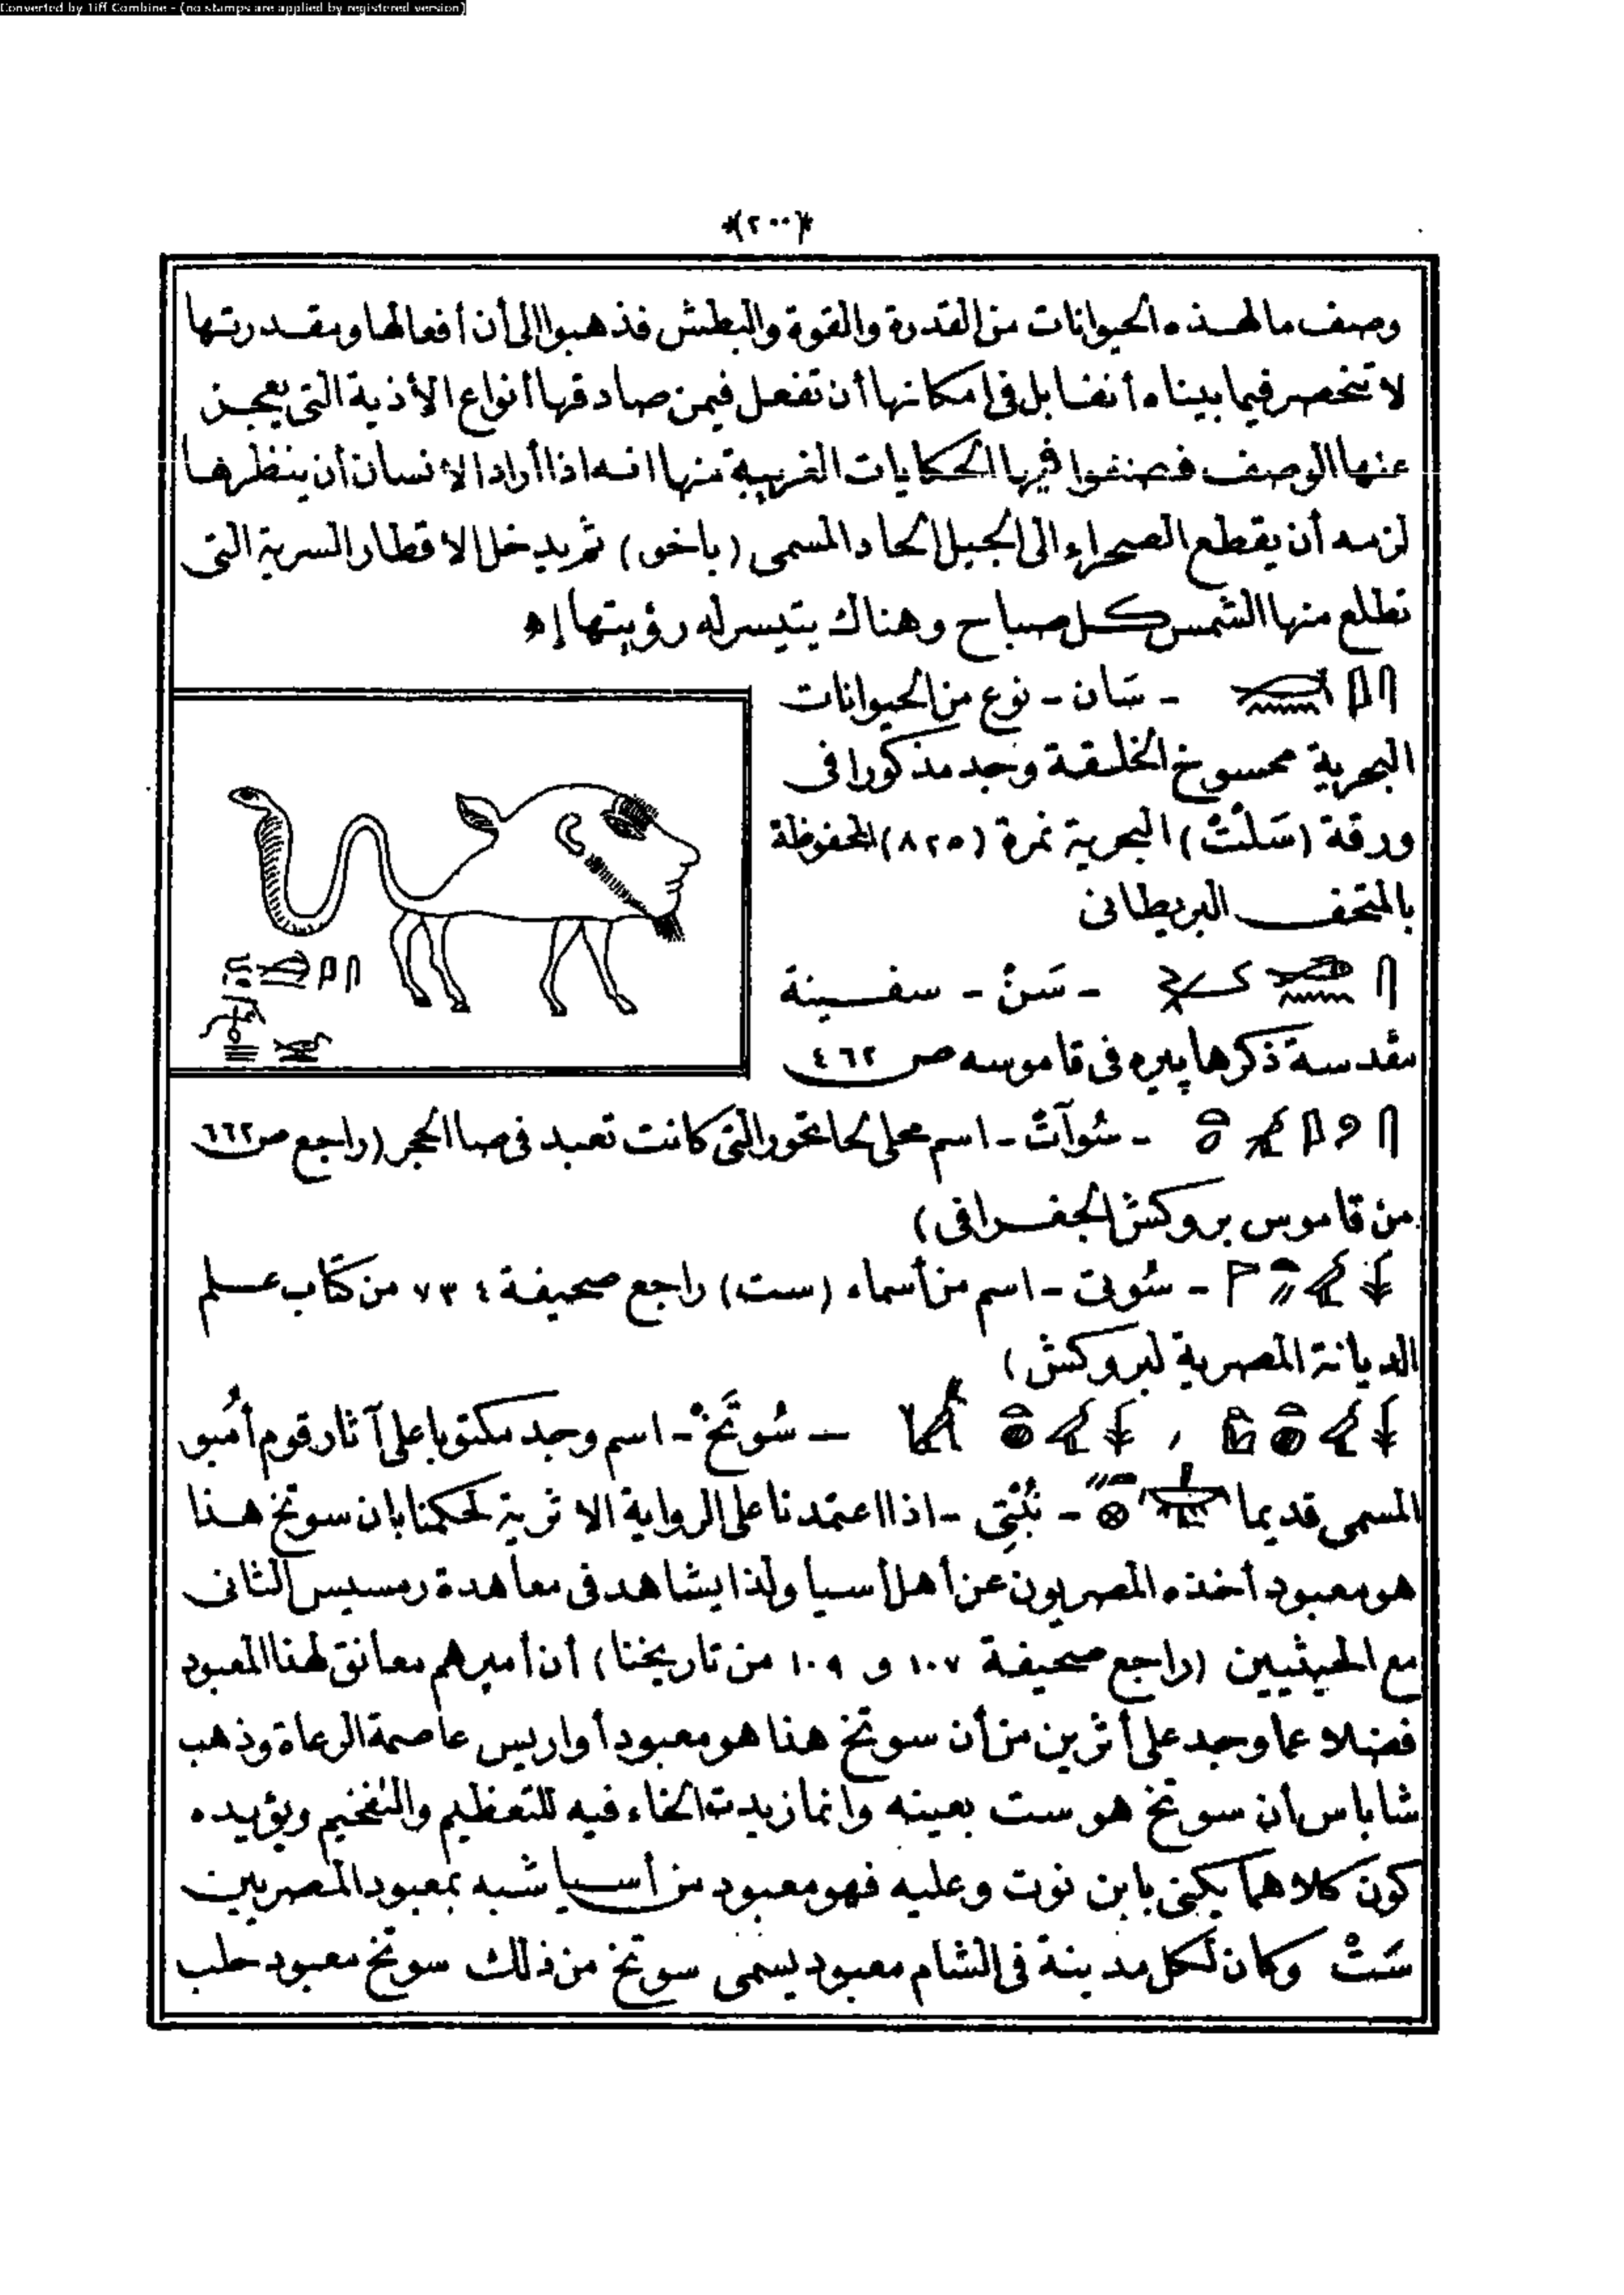 Converted by Tiff Combine - (no stamps are applied by registered version)
*(٢٠٠)*
وصف ما لهذه الحيوانات من القدرة والقوة والبطش فذهبوا الى أن أفعالها ومقدرتها
لا تنحصر فيما بيناه أنفا بل فى إمكانها أن تفعل فيمن صادقها أنواع الأذية التى يعجز
عنها الوصف فصنفوا فيها الحكايات الغريبة منها انه اذا أراد الانسان أن ينظرها
لزمه أن يقطع الصحراء الى الجبل الحاد المسمى (باخو) ثم يدخل الاقطار السرية التى
تطلع منها الشمس كل صباح وهناك يتيسر له رؤيتها إه
- سَان - نوع من الحيوانات
البحرية ممسوخ الخلقة وجد مذكورا فى
ورقة (سَلْتْ) البحرية نمرة (٨٢٥) المحفوظة
بالمتحف البريطانى
- سَنْ - سفينة
مقدسة ذكرها پيره فى قاموسه ص ٤٦٢
- سُوآتْ - اسم محلى لحاتحور التى كانت تعبد فى صا الحجر (راجع ص ٦٦٢
من قاموس بروكش الجغرافى)
- سُوتى - اسم من أسماء (ست) راجع صحيفة ٧٣٤ من كتاب علم
الديانة المصرية لبروكش)
— سُوتَخْ - اسم وجد مكتوبا على آثار قوم أمبو
المسمى قديما - نُبْتِى - اذا اعتمدنا على الرواية الاثرية لحكمنا بان سوتخ هذا
هو معبود أخذه المصريون عن أهل أسيا ولذا يشاهد فى معاهدة رمسيس الثانى
مع الحيثيين (راجع صحيفة ١٠٧ و ١٠٩ من تاريخنا) أن أميرهم معانق لهذا المعبود
فضلا عما وجد على أثرين من أن سوتخ هذا هو معبود أواريس عاصمة الرعاة وذهب
شاباس ان سوتخ هو ست بعينه وانما زيدت الخاء فيه للتعظيم والتفخيم ويؤيده
كون كلاهما يكنى بابن نوت وعليه فهو معبود من أسيا شبه بمعبود المصريين
سَتْ وكان لكل مدينة فى الشام معبود يسمى سوتخ من ذلك سوتخ معبود حلب